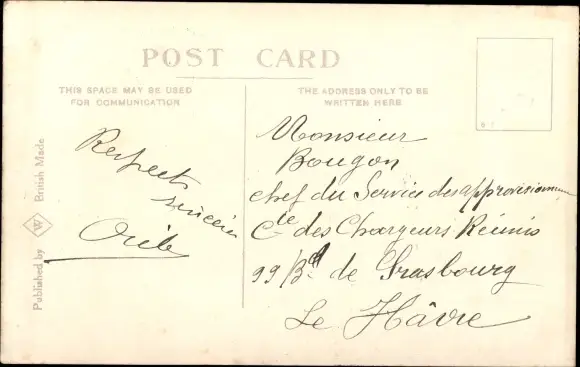 POST CARD
THIS SPACE MAY BE USED
FOR COMMUNICATION
THE ADDRESS ONLY TO BE
WRITTEN HERE
Respects
sincères
Monsieur
Bougon
chef du Service des approvisionnem
Cie des Chargeurs Réunis
99 Bd de Strasbourg
Le Hâvre
Published by W British Made